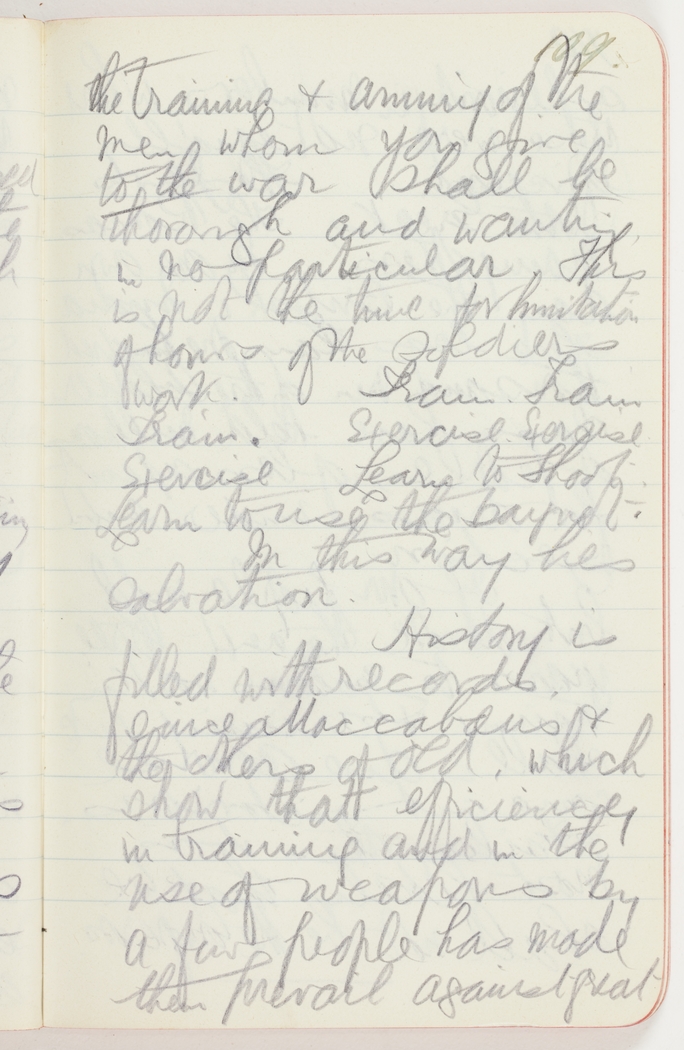 199.
the training & arming of the
men whom you give
to the war shall be
thorough and wanting
in no particular. This
is not the time for limitation
of hours of the soldiers
work. Train. Train
Train. Exercise. Exercise
Exercise Learn to Shoot.
Learn to use the bayonet.
In this way lies
salvation.
History is
filled with records,
since Maccabaeus &
the others of old, which
show that efficiency
in training and in the
use of weapons by
a few people has made
them prevail against great